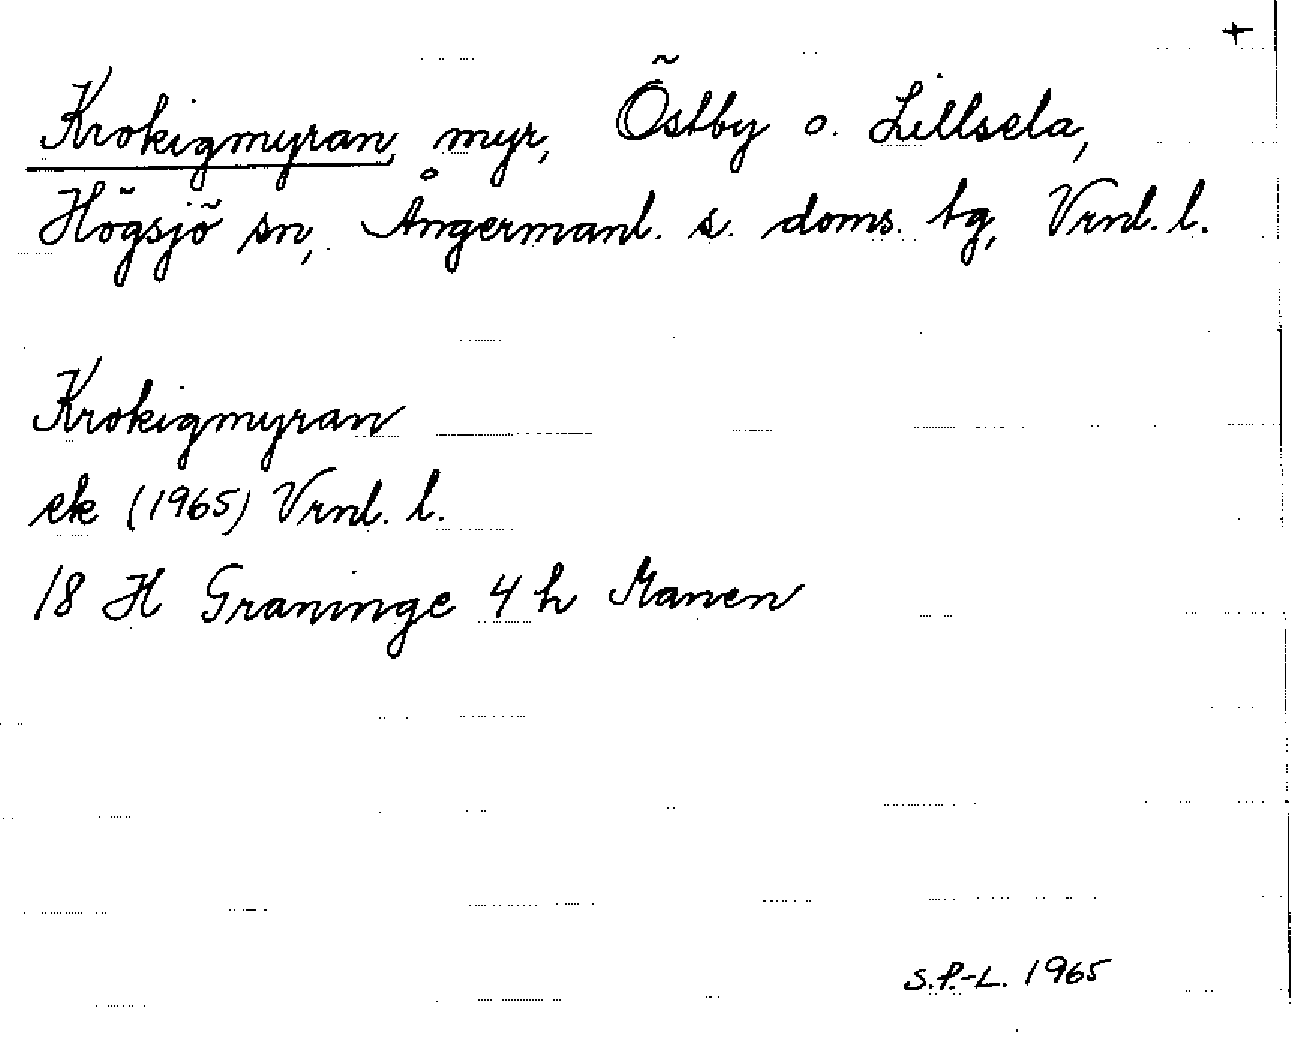 +
Krokigmyran, myr, Östby o. Lillsela,
Högsjö sn, Ångermanl. s. doms. tg, Vrnl. l.
Krokigmyran
ek (1965) Vrnl. l.
18 H Graninge 4 h Manen
S.P.-L. 1965